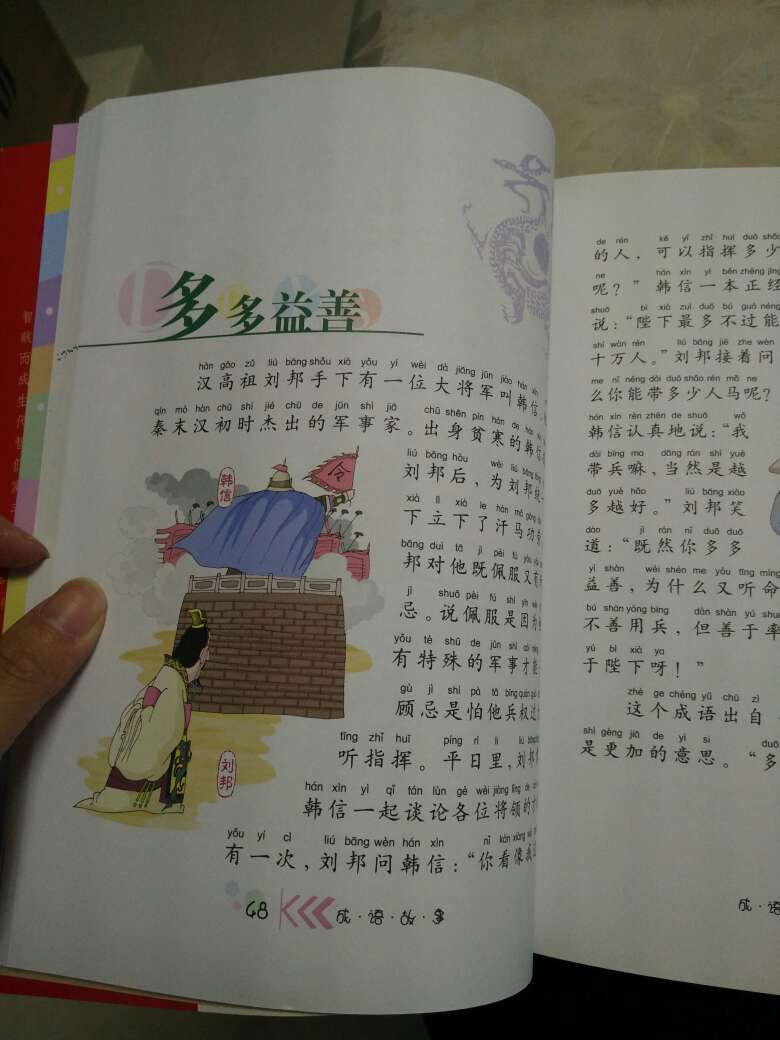 多多益善
hàn gāo zǔ liú bāng shǒu xià yǒu yí wèi dà jiāng jūn jiào hán xìn
汉高祖刘邦手下有一位大将军叫韩信
qín mò hàn chū shí jié chū de jūn shì jiā chū shēn pín hán de hán
秦末汉初时杰出的军事家。出身贫寒的韩信
liú bāng hòu wèi liú bāng
刘邦后，为刘邦统
xià lì xià le hàn mǎ gōng
下立下了汗马功
bāng duì tā jì pèi fú yòu
邦对他既佩服又
jì shuō pèi fú shì yīn
忌。说佩服是因为
yǒu tè shū de jūn shì cái
有特殊的军事才
gù jì shì pà tā bīng quán
顾忌是怕他兵权过
tīng zhǐ huī píng rì lǐ liú
听指挥。平日里，刘邦
hán xìn yì qǐ tán lùn gè wèi jiàng lǐng de
韩信一起谈论各位将领的
yǒu yí cì liú bāng wèn hán xìn nǐ kàn xiàng
有一次，刘邦问韩信：“你看像我
韩信
令
刘邦
68
成·语·故·事
de rén kě yǐ zhǐ huī duō shǎo
的人，可以指挥多少
ne hán xìn yì běn zhèng jīng
呢？”韩信一本正经
shuō bì xià zuì duō bú guò néng
说：“陛下最多不过能
shí wàn rén liú bāng jiē zhe wèn
十万人。”刘邦接着问
me nǐ néng dài duō shǎo rén mǎ ne
么你能带多少人马呢？
hán xìn rèn zhēn de shuō wǒ
韩信认真地说：“我
dài bīng ma dāng rán shì yuè
带兵嘛，当然是越
duō yuè hǎo liú bāng xiào
多越好。”刘邦笑
dào jì rán nǐ duō duō
道：“既然你多多
yì shàn wèi shén me yòu tīng mìng
益善，为什么又听命
bú shàn yòng bīng dàn shàn yú shuài
不善用兵，但善于率
yú bì xià ya
于陛下呀！”
zhè ge chéng yǔ chū zì
这个成语出自
shì gèng jiā de yì si
是更加的意思。“多
成·语
智
而
成
生
代